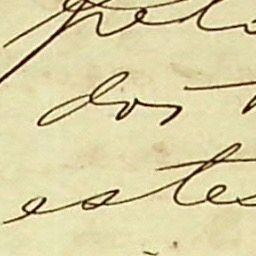 pelo
dos
estes